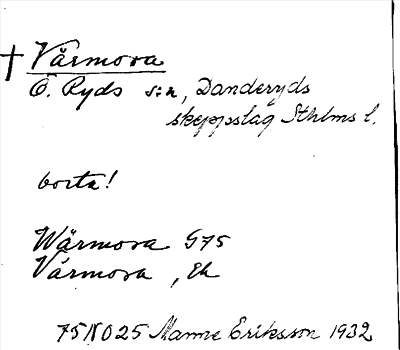 † Värmora
Ö. Ryds s:n, Danderyds
skeppslag Sthlms l.
borta!
Wärmora G75
Värmora , Ek
75NO25 Manne Eriksson 1932